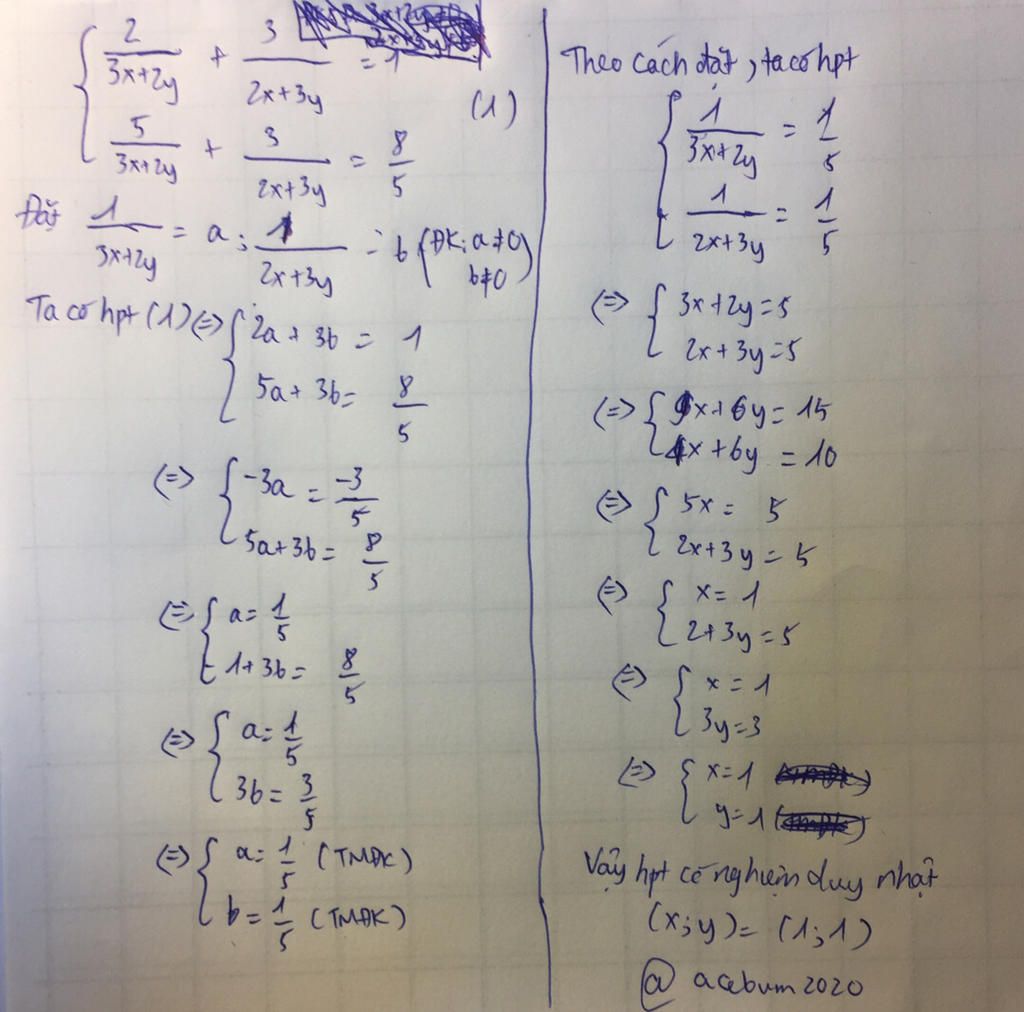 2/(3x+2y) + 3/(2x+3y) = 1
(1)
5/(3x+2y) + 3/(2x+3y) = 8/5
Đặt 1/(3x+2y) = a ; 1/(2x+3y) = b (ĐK: a≠0
b≠0)
Ta có hpt (1) (=) { 2a + 3b = 1
5a + 3b = 8/5
(=) { -3a = -3/5
5a+3b = 8/5
(=) { a = 1/5
1+3b = 8/5
(=) { a = 1/5
3b = 3/5
(=) { a = 1/5 (TMĐK)
b = 1/5 (TMĐK)
Theo cách đặt, ta có hpt
{ 1/(3x+2y) = 1/5
1/(2x+3y) = 1/5
(=) { 3x+2y = 5
2x+3y = 5
(=) { 9x+6y = 15
4x+6y = 10
(=) { 5x = 5
2x+3y = 5
(=) { x = 1
2+3y = 5
(=) { x = 1
3y = 3
(=) { x = 1
y = 1
Vậy hpt có nghiệm duy nhất
(x;y) = (1;1)
@ acebum2020